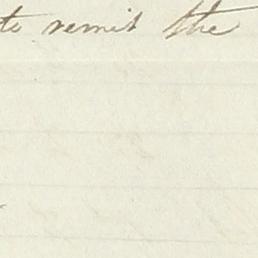 to remit the